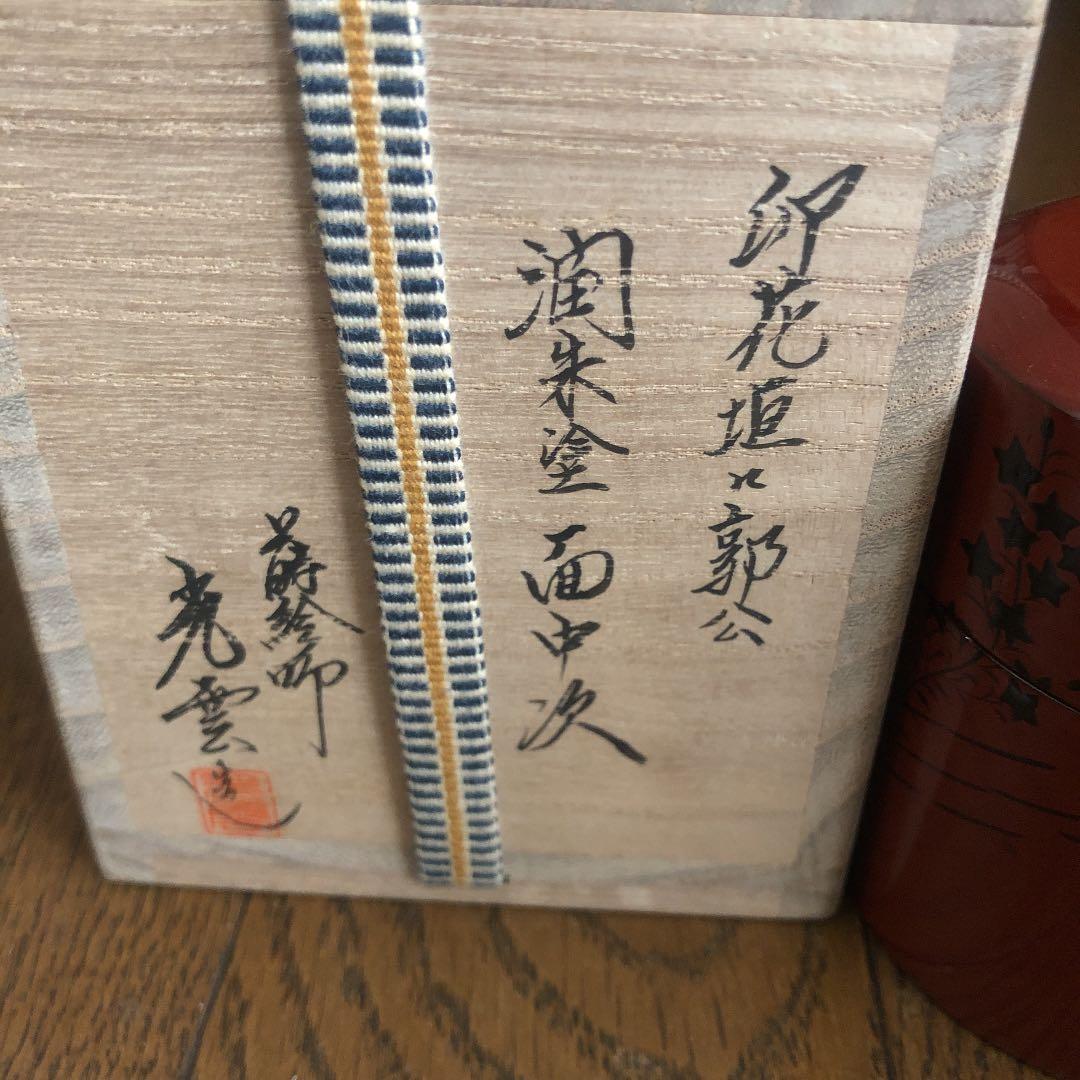 卯花垣ニ郭公
潤朱塗面中次
呂蒔絵師
光雲造